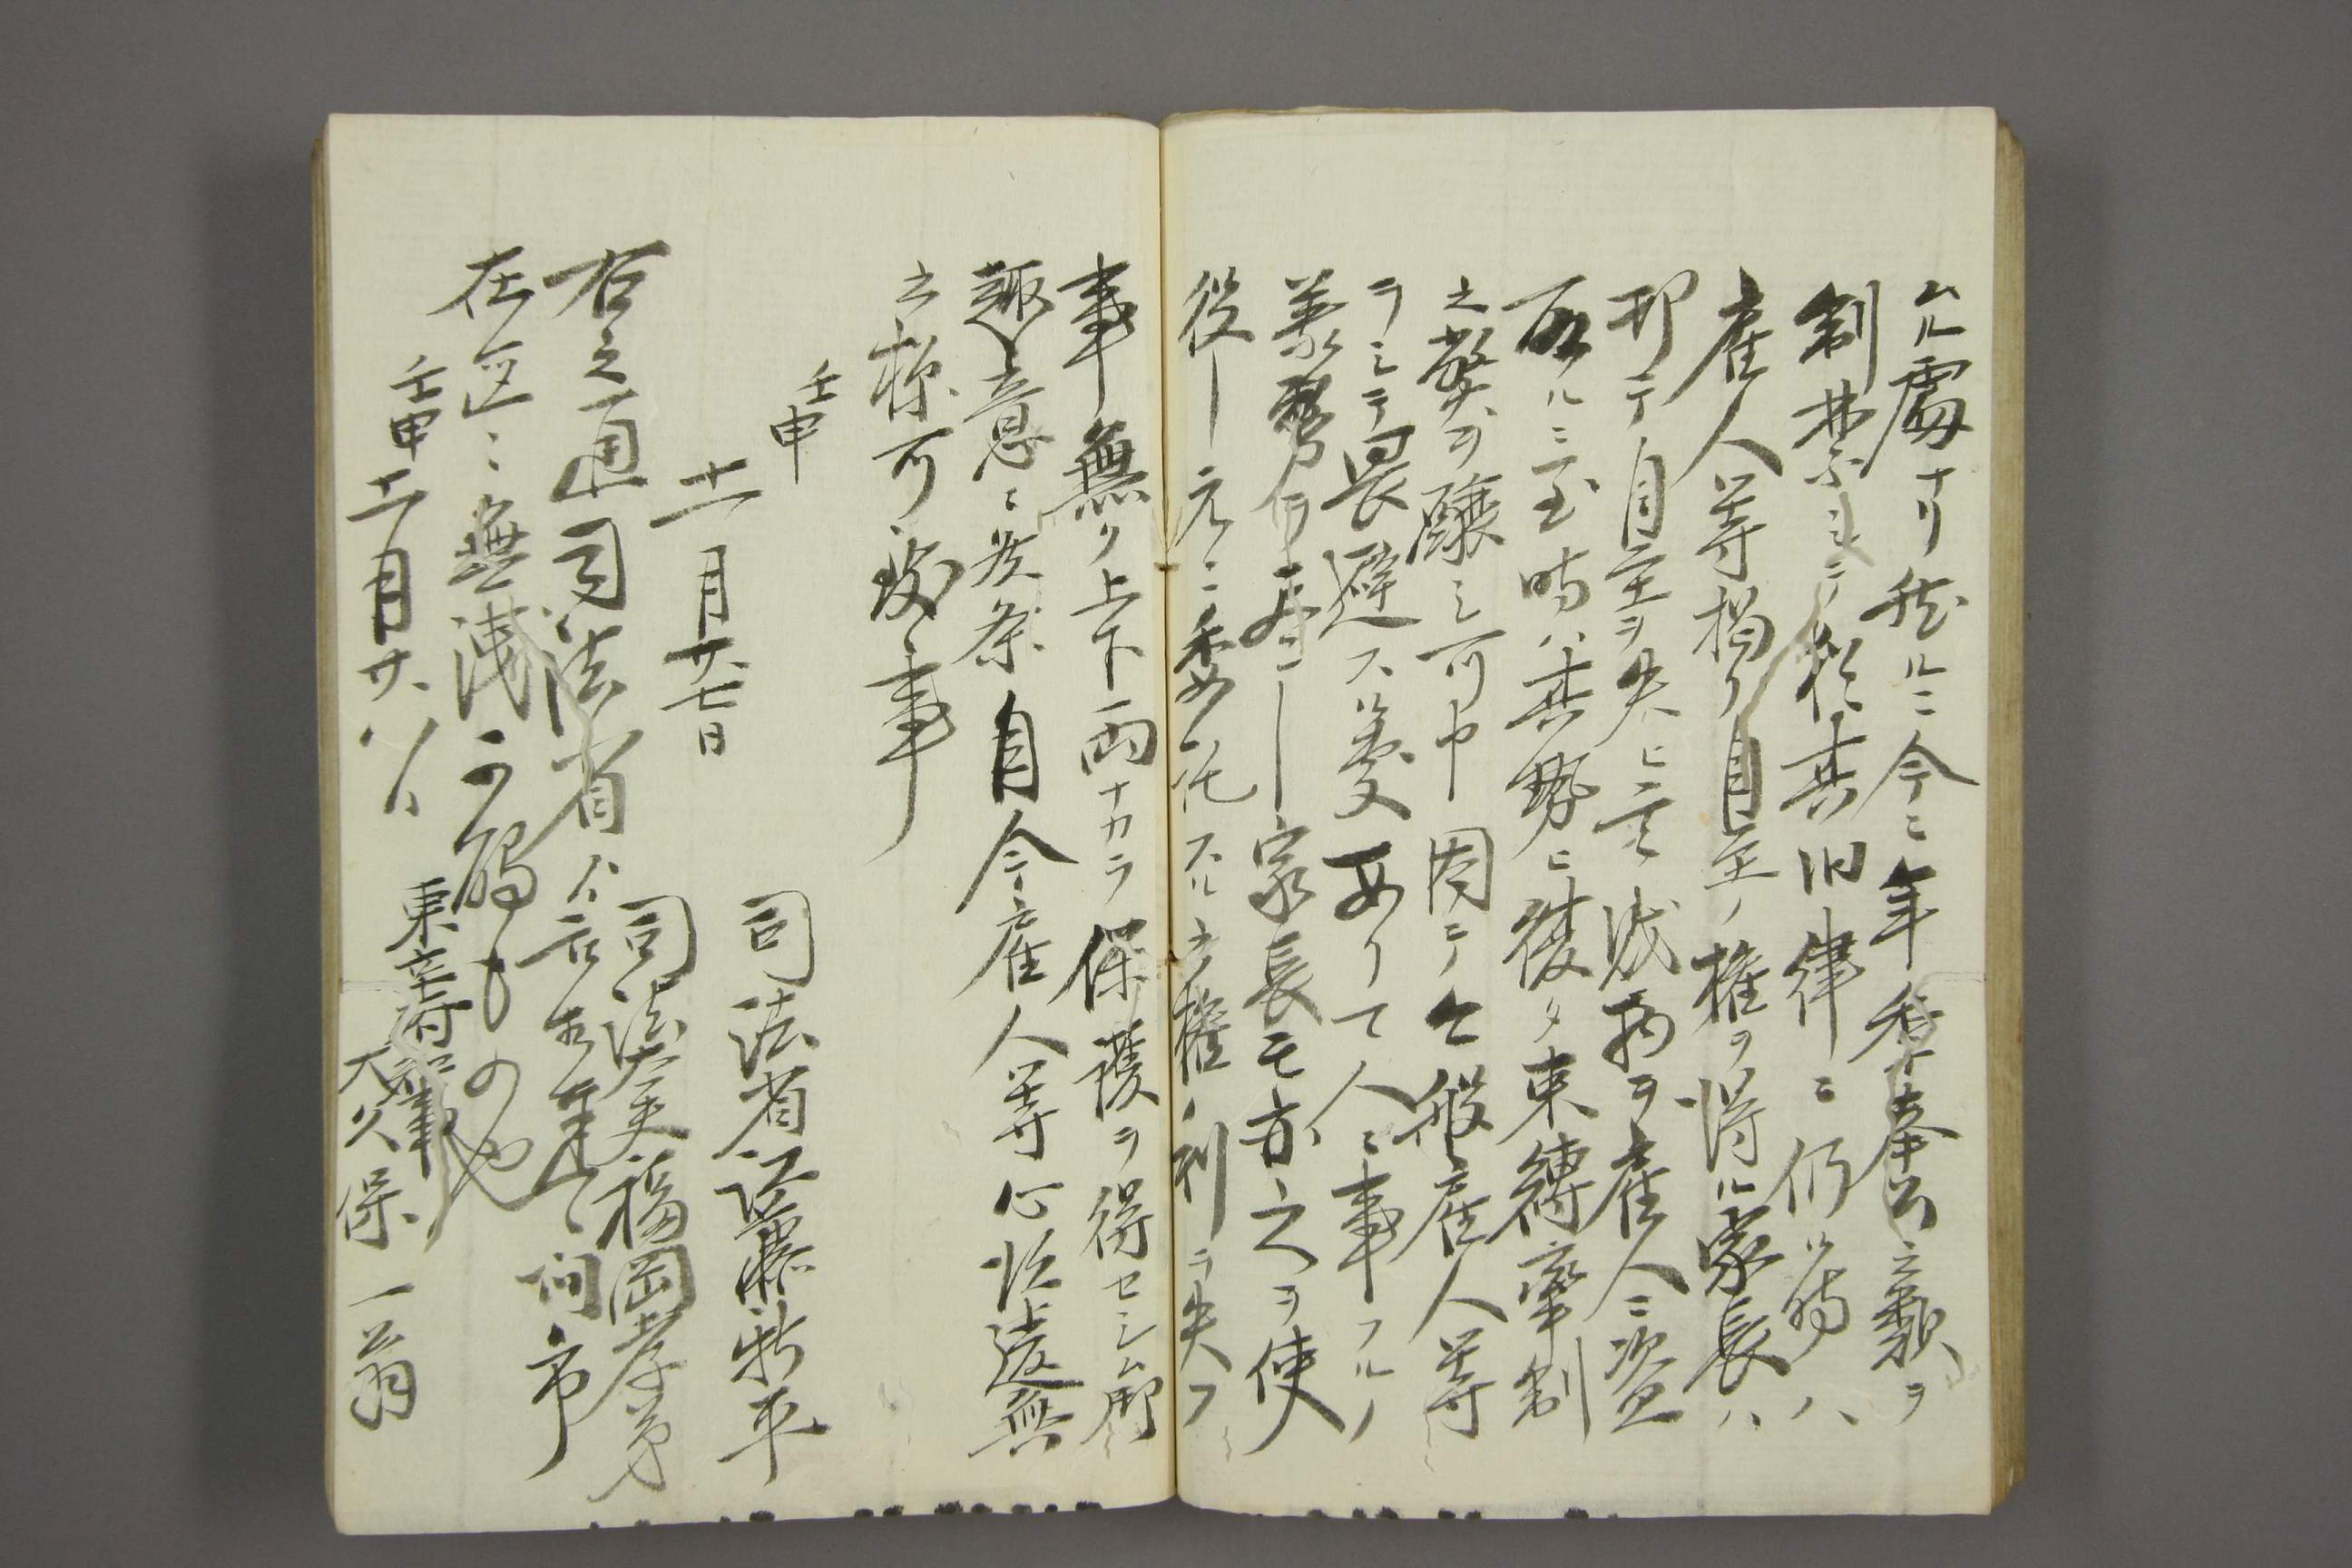 ムル處ナリ然ルニ今ニ年季奉公之類ヲ
制禁シテ猶其旧律ニ仍ル時ハ
雇人等獨リ自主ノ権ヲ得ル家長ハ
却テ自主ヲ失ヒ其威柄ヲ雇人ニ盗
取ルニ至時ハ其勢ニ彼ヲ束縛牽制
之弊ヲ醸シ可申因テ今般雇人等
ヲシテ畏避スル處アリテ人ニ事フルノ
義務ヲ尽シ家長モ亦之ヲ使
役シ之ニ委託スル之權利ヲ失フ
事無ク上下両ナカラ保護ヲ得セシムル
趣意ニ候条自今雇人等心得違無
之様可致事
壬申
十一月廿七日
司法省江藤新平
司法大輔福岡孝弟
右之通司法省ゟ被相達候間市
在区々無洩可觸もの也
壬申十一月廿八日
東京府知事
大久保一翁